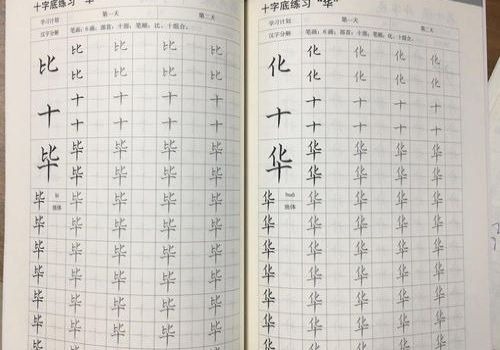 十字底练习
学习计划 第一天 第二天
汉字分解 笔画:6画;部首:十部;笔顺:比、十组合。
比 比 比 比 比
比 比 比 比
十 十 十 十 十
十 十 十 十
毕 毕 毕 毕 毕
毕 毕 毕 毕
毕 毕 毕 毕 毕
独体
毕 毕 毕 毕 毕
毕 毕 毕 毕 毕
毕 毕 毕 毕 毕
毕 毕 毕 毕 毕
毕 毕 毕 毕 毕
毕 毕 毕 毕 毕
十字底练习 "华"
学习计划 第一天 第二天
汉字分解 笔画:6画;部首:十部;笔顺:化、十组合。
化 化 化 化 化
化 化 化 化
十 十 十 十 十
十 十 十 十
华 华 华 华 华
华 华 华 华
华 huá 华 华 华 华
独体
华 华 华 华 华
华 华 华 华 华
华 华 华 华 华
华 华 华 华 华
华 华 华 华 华
华 华 华 华 华